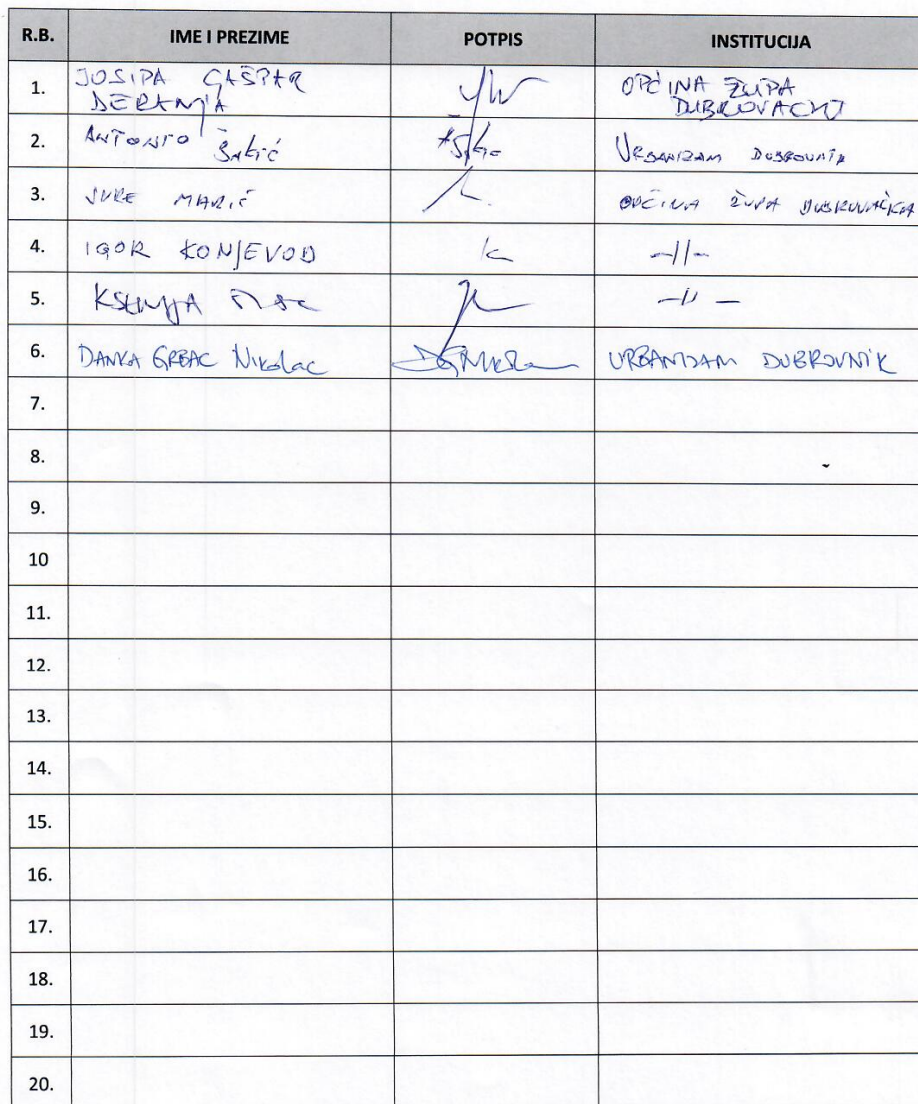 R.B. IME I PREZIME POTPIS INSTITUCIJA
1. JOSIPA GAŠPAR OPĆINA ŽUPA
DERANJA
2. ANTONIO Šakić URBANIZAM DUBROVNIK
3. JURE MARIĆ OPĆINA ŽUPA DUBROVAČKA
4. IGOR KONJEVOD -||-
5. KSENIJA -||-
6. DANKA GRBAC Nikolac URBANIZAM DUBROVNIK
7.
8.
9.
10
11.
12.
13.
14.
15.
16.
17.
18.
19.
20.